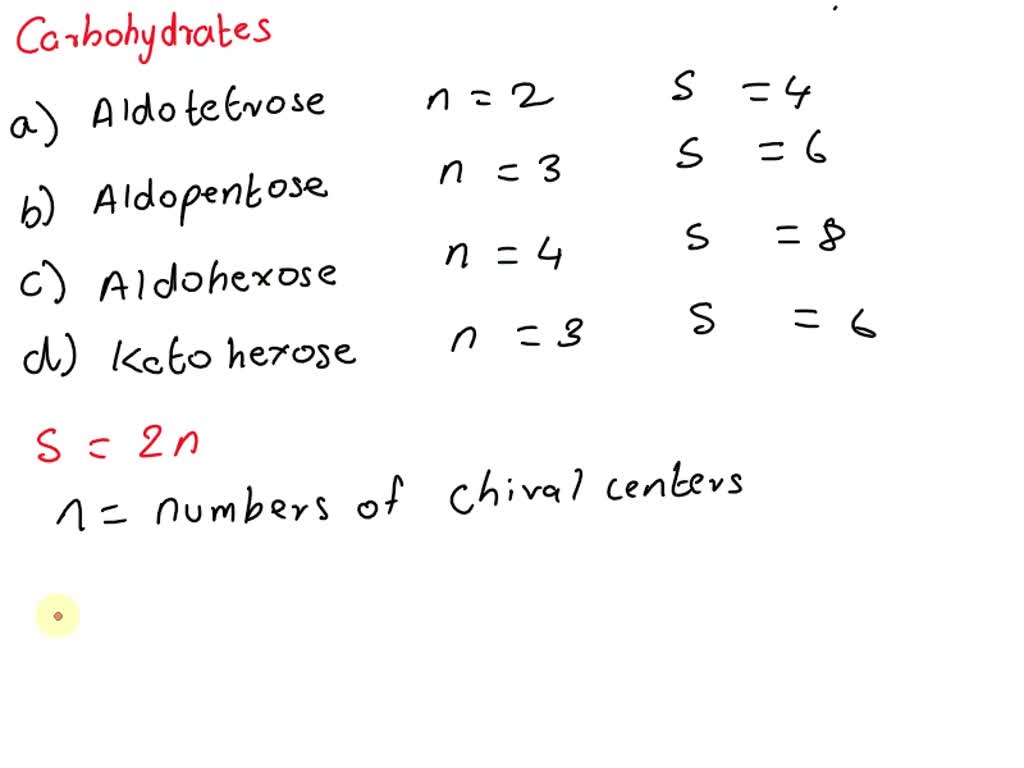 Carbohydrates
a) Aldotetrose n = 2 S = 4
b) Aldopentose n = 3 S = 6
c) Aldohexose n = 4 S = 8
d) Keto hexose n = 3 S = 6
S = 2n
n = numbers of chiral centers